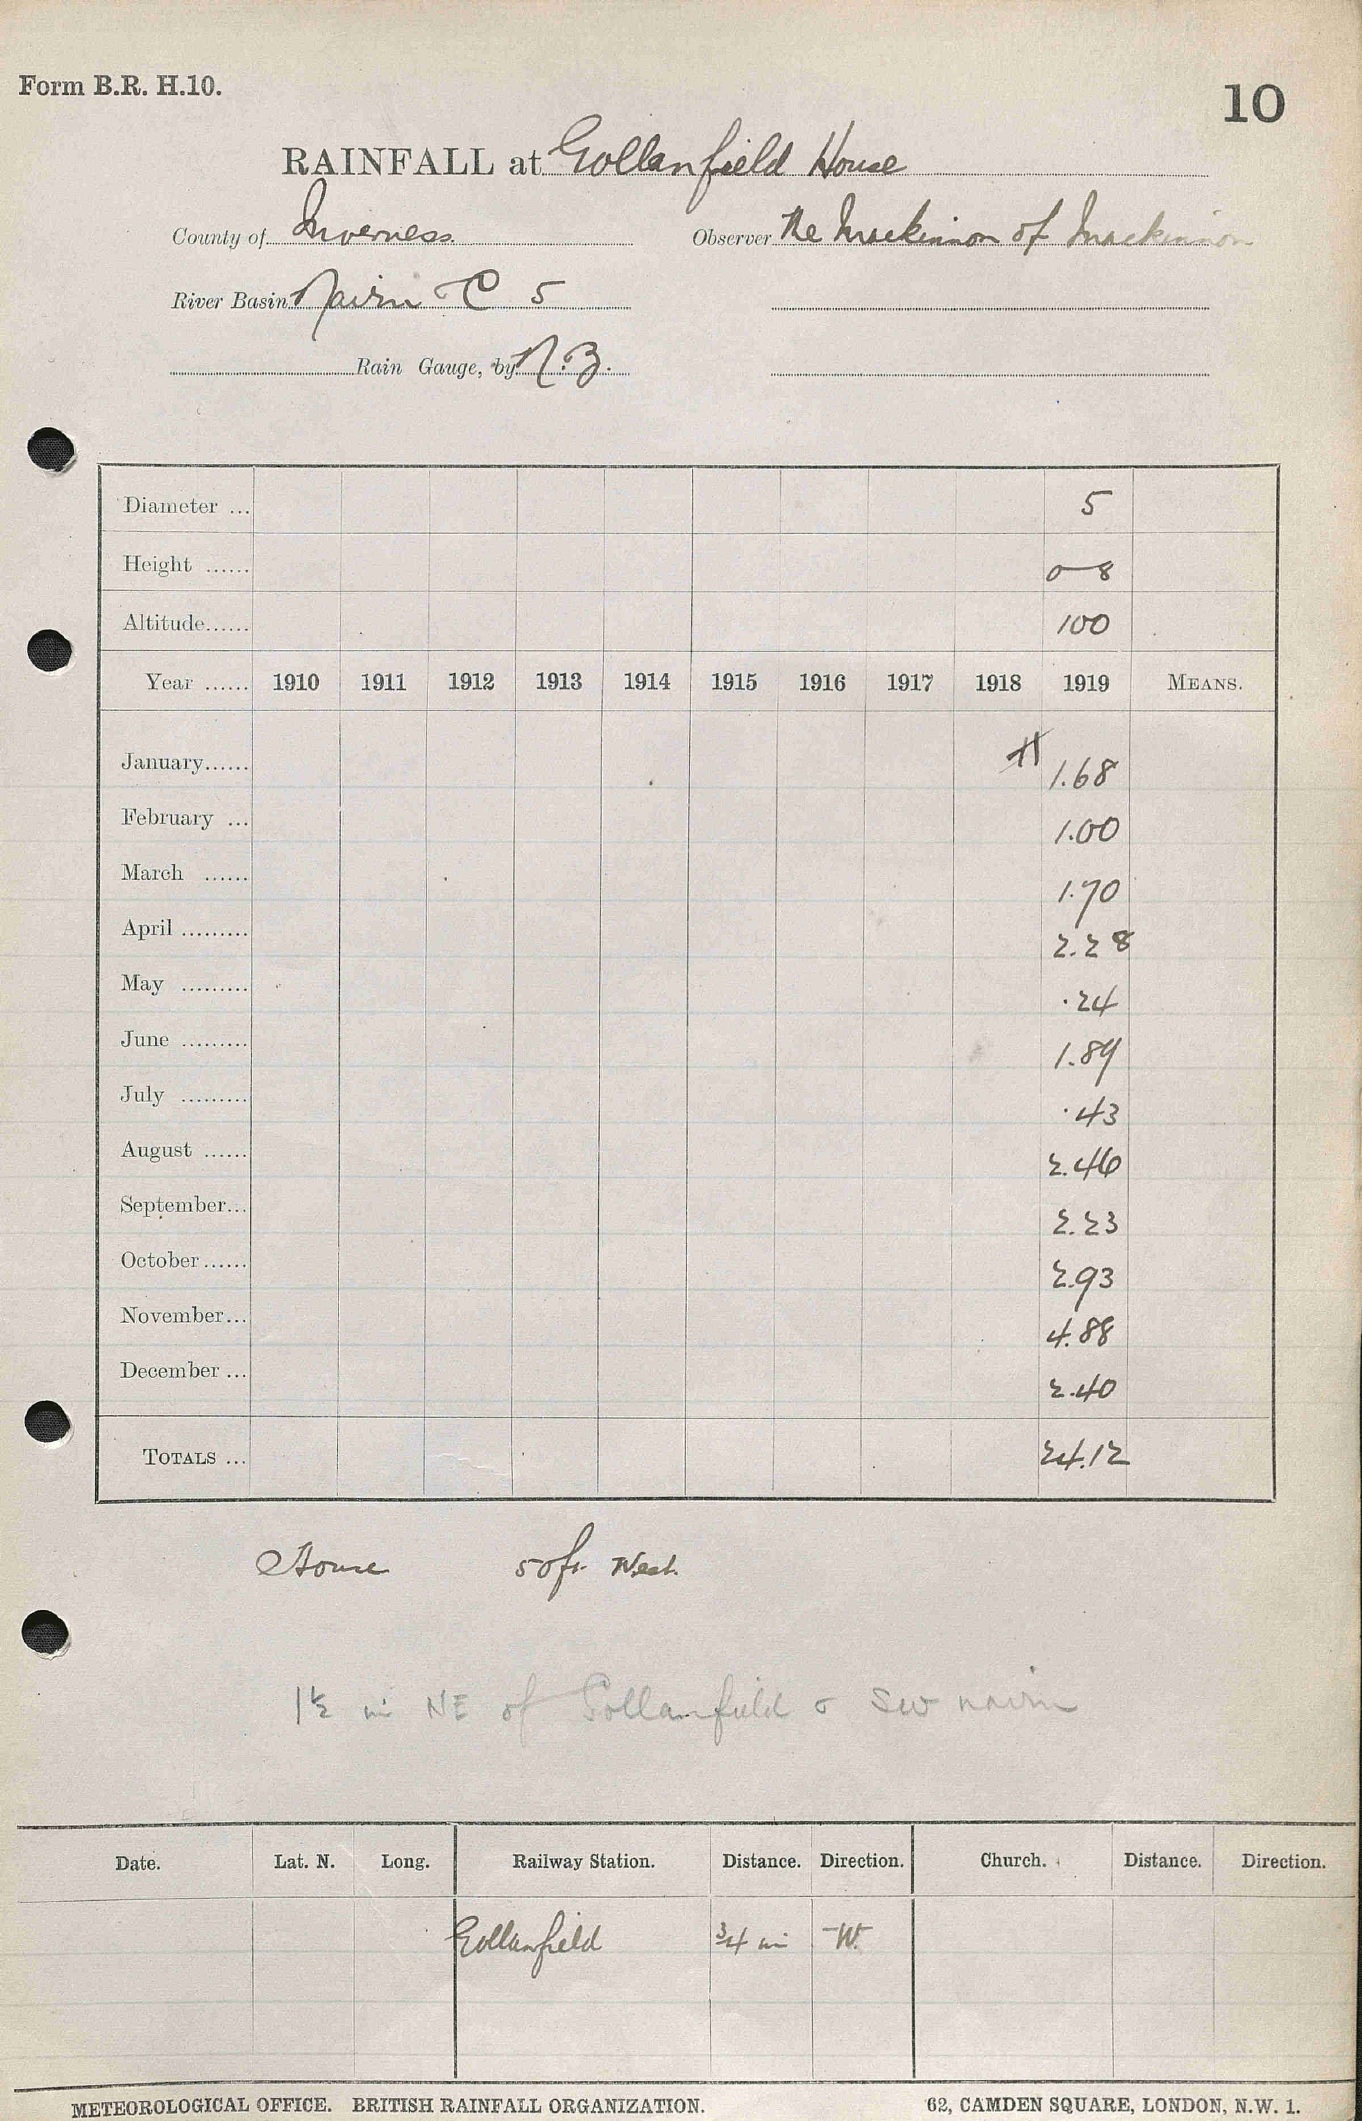 Form B.R. H.10.
10
RAINFALL at Gollanfield House
County of Inverness. Observer The Mackinnon of Mackinnon
River Basin Nairn C 5
Rain Gauge, by N.Z.
Diameter ... 5
Height ...... 0–8
Altitude...... 100
Year ...... 1910 1911 1912 1913 1914 1915 1916 1917 1918 1919 MEANS.
January...... 1.68
February ... 1.00
March ...... 1.70
April ......... 2.28
May ......... .24
June ......... 1.89
July ......... .43
August ...... 2.46
September... 2.23
October...... 2.93
November... 4.88
December ... 2.40
TOTALS ... 24.12
House 50ft. West.
1½ m NE of Gollanfield SW nairn
Date. Lat. N. Long. Railway Station. Distance. Direction. Church. Distance. Direction.
Gollanfield ¾ m W.
METEOROLOGICAL OFFICE. BRITISH RAINFALL ORGANIZATION. 62, CAMDEN SQUARE, LONDON, N.W. 1.